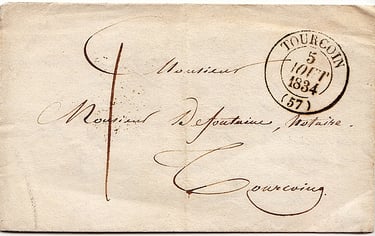 TOURCOIN
5
AOUT
1834
(57)
Monsieur
Monsieur Defontaine, Notaire.
Tourcoing